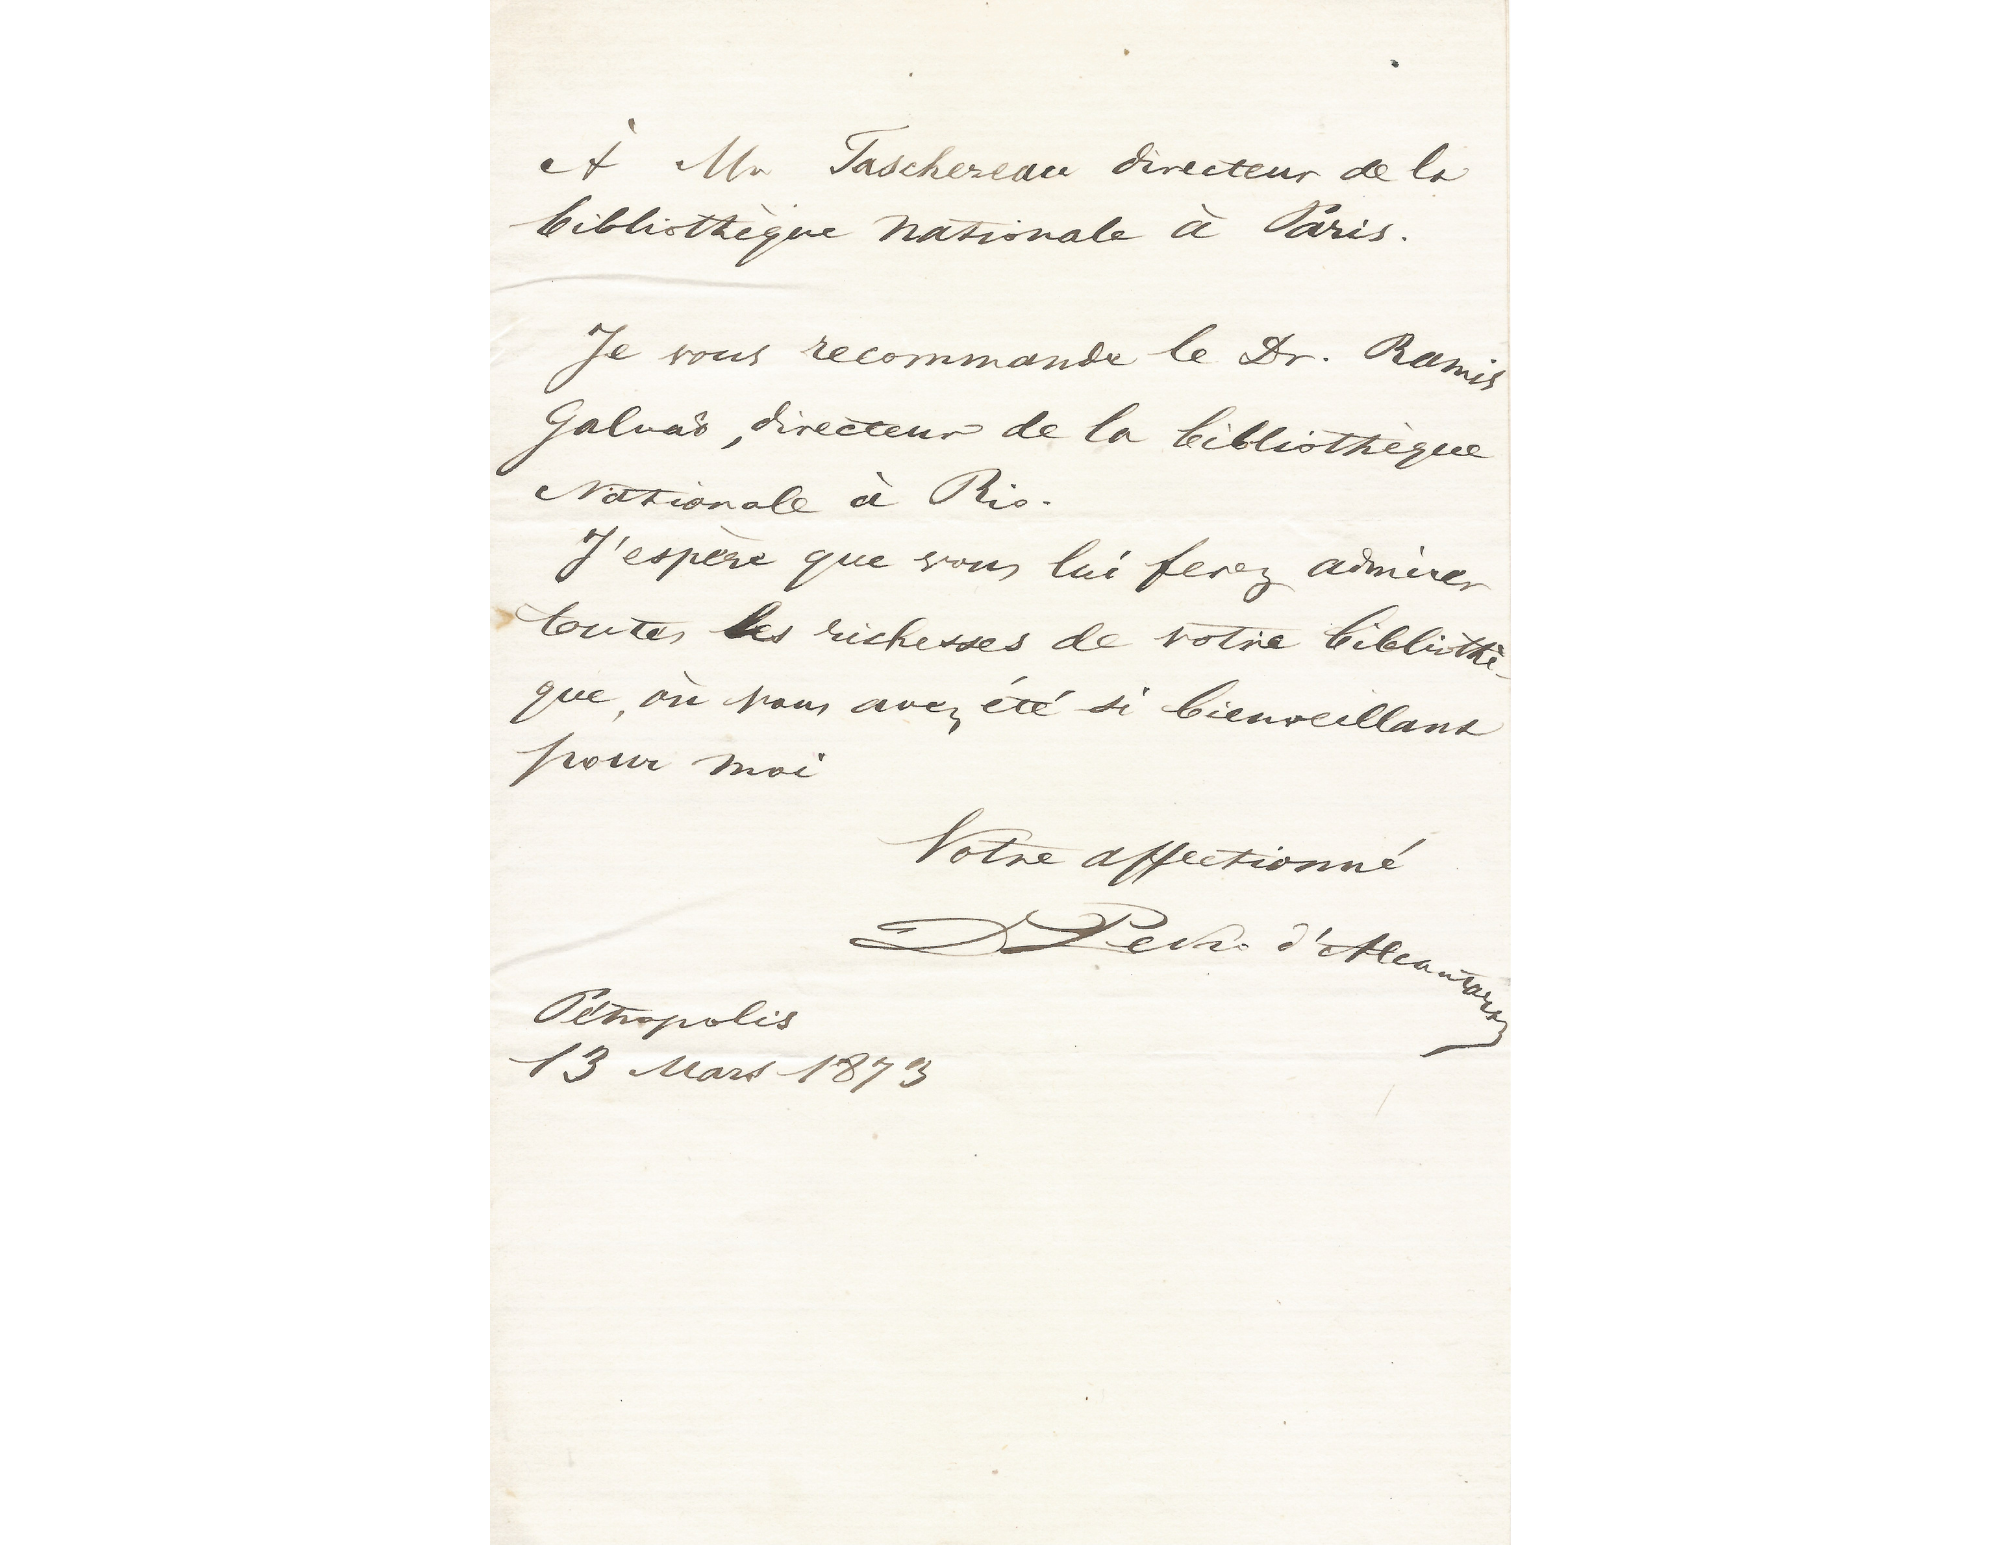 À Mr Taschereau directeur de la
bibliothèque nationale à Paris.
Je vous recommande le Dr. Ramis
Galvaõ, directeur de la bibliothèque
Nationale à Rio.
J'espère que vous lui ferez admirer
toutes les richesses de votre bibliothè-
que, où vous avez été si bienveillant
pour moi
Votre affectionné
D Pedro d'Alcantara
Pétropolis
13 Mars 1873